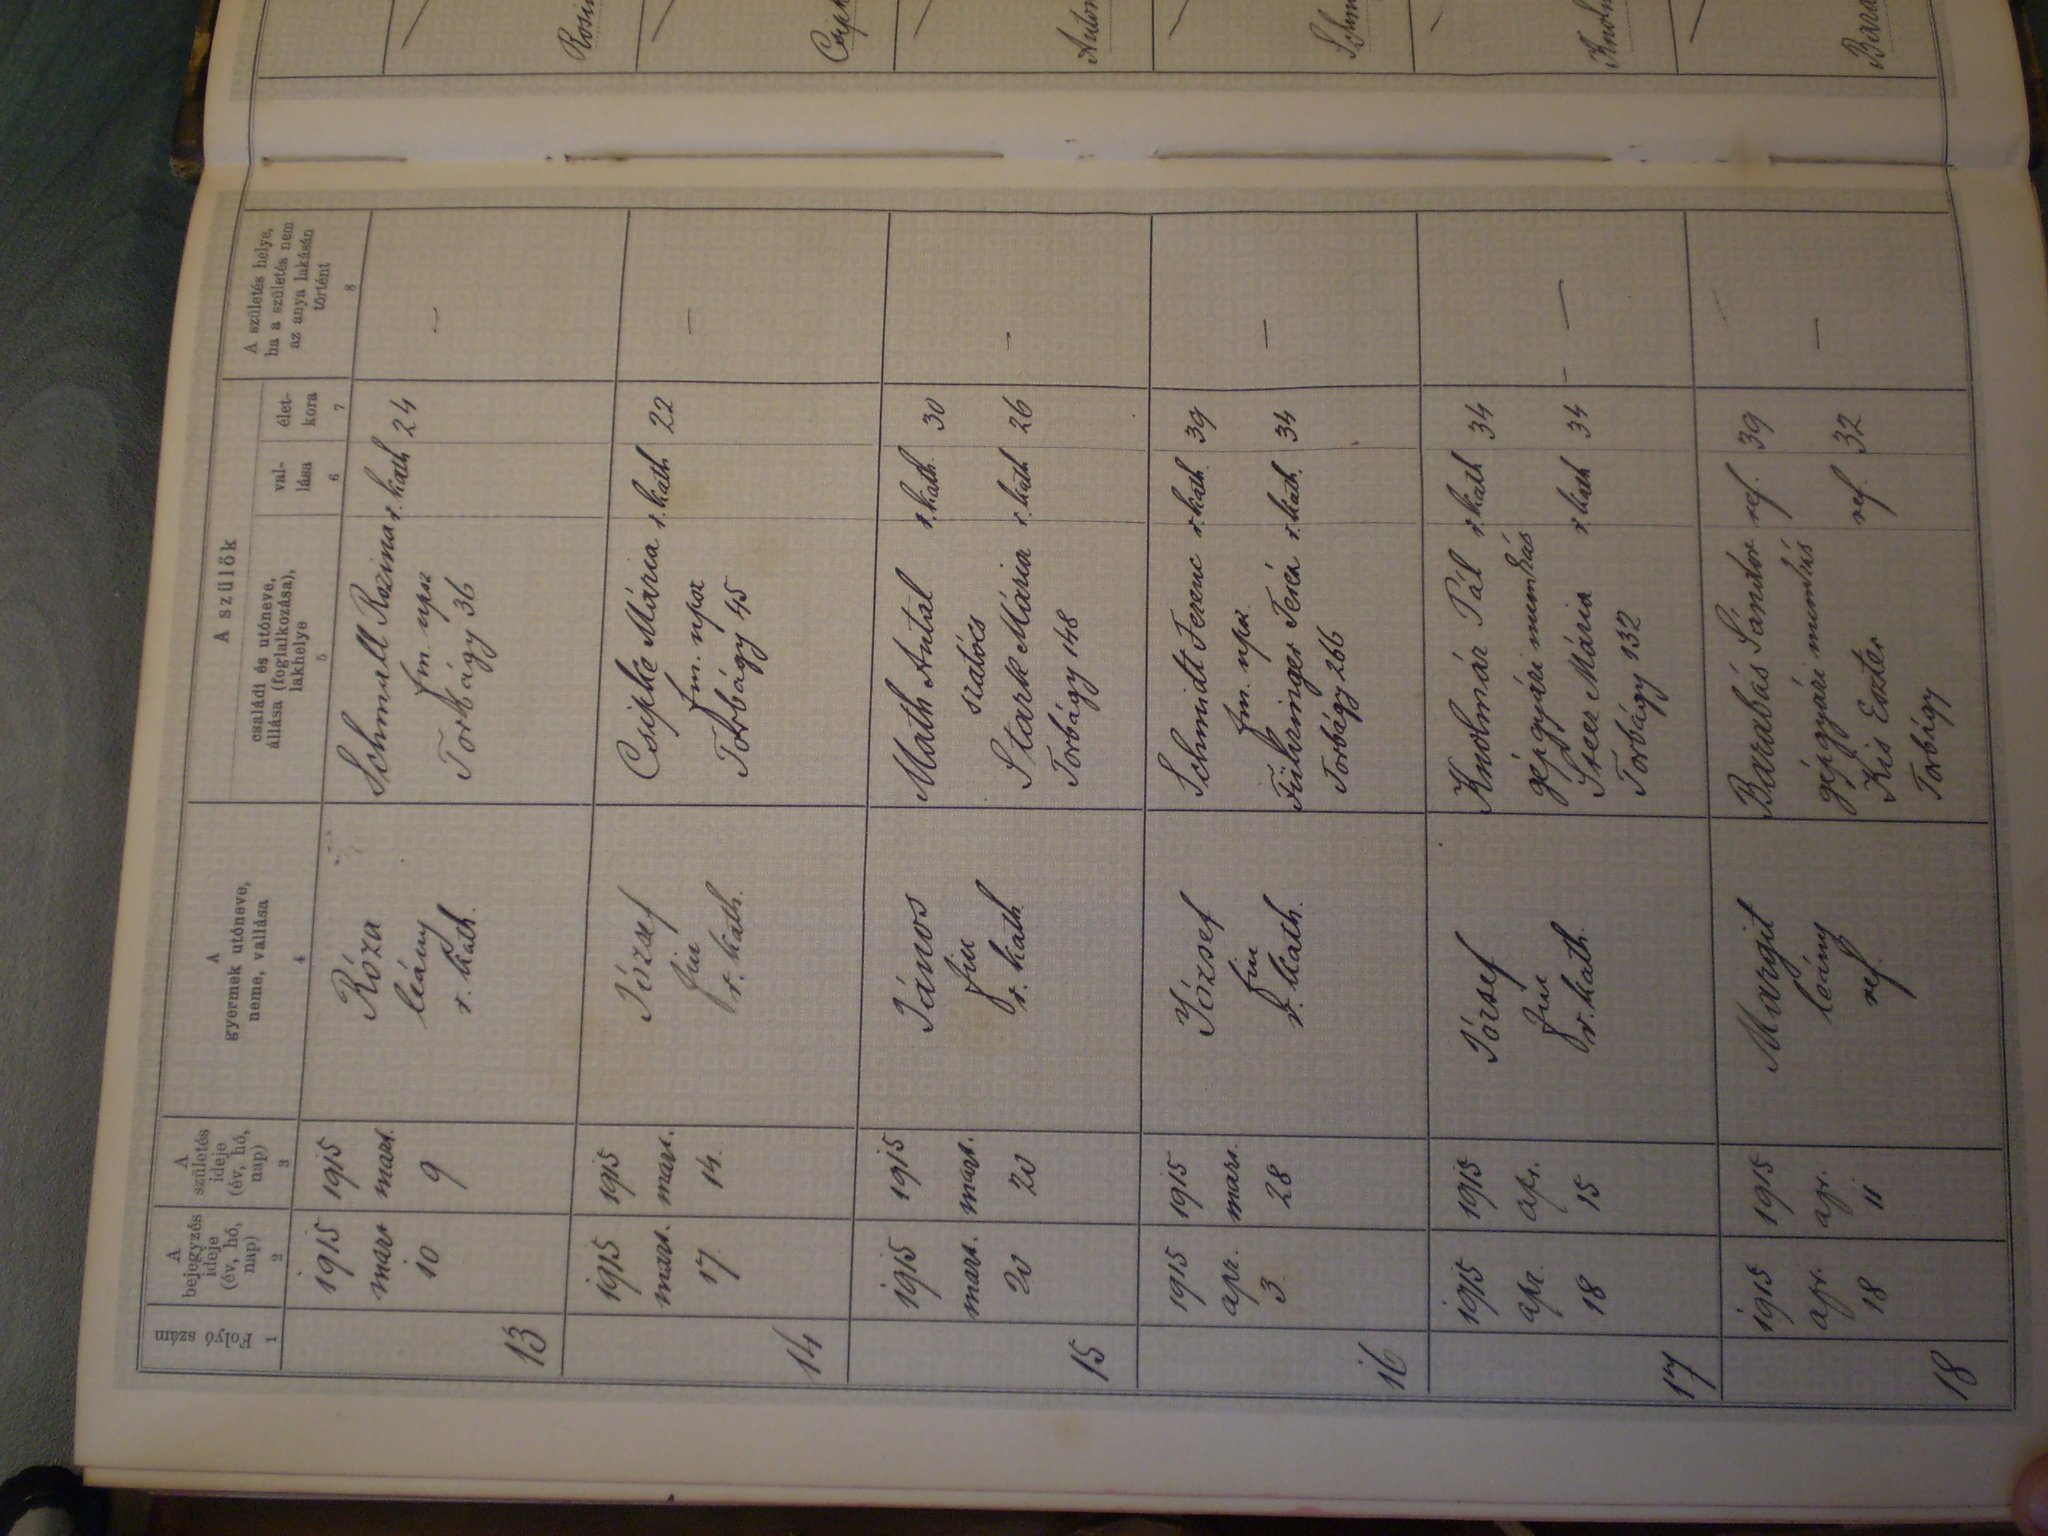 A szülők
1
Folyó szám
2
A
bejegyzés
ideje
(év, hó,
nap)
3
A
születés
ideje
(év, hó,
nap)
4
A
gyermek utóneve,
neme, vallása
5
családi és utóneve,
állása (foglalkozása),
lakhelye
6
val-
lása
7
élet-
kora
8
A születés helye,
ha a születés nem
az anya lakásán
történt
13
1915
mart
10
1915
mart.
9
Róza
leány
r. kath.
Schmall Rozina r. kath 24
fm. npsz
Torbágy 36
—
14
1915
mart.
17
1915
mart.
14.
József
fiu
r. kath.
Csipke Mária r. kath 22
fm. npsz
Torbágy 45
—
15
1915
mart.
20
1915
mart.
20
János
fiu
r. kath.
Math Antal r. kath. 30
szatócs
Stark Mária r. kath 26
Torbágy 148
—
16
1915
apr.
3.
1915
mart.
28
József
fiu
r. kath.
Schmidt Ferenc r. kath. 39
fm. npsz.
Führinger Teréz r. kath. 34
Torbágy 266
—
17
1915
apr.
18
1915
apr.
15
József
fiu
r. kath.
Knolmár Pál r. kath 34
gépgyári munkás
Steer Mária r. kath 34
Torbágy 132
— —
18
1915
apr.
18
1915
apr.
11
Margit
leány
ref.
Barabás Sándor ref. 39
gépgyári munkás
Kis Eszter ref. 32
Torbágy
—
Rosin
Csipk
Anton
Schm
Knolm
Bara